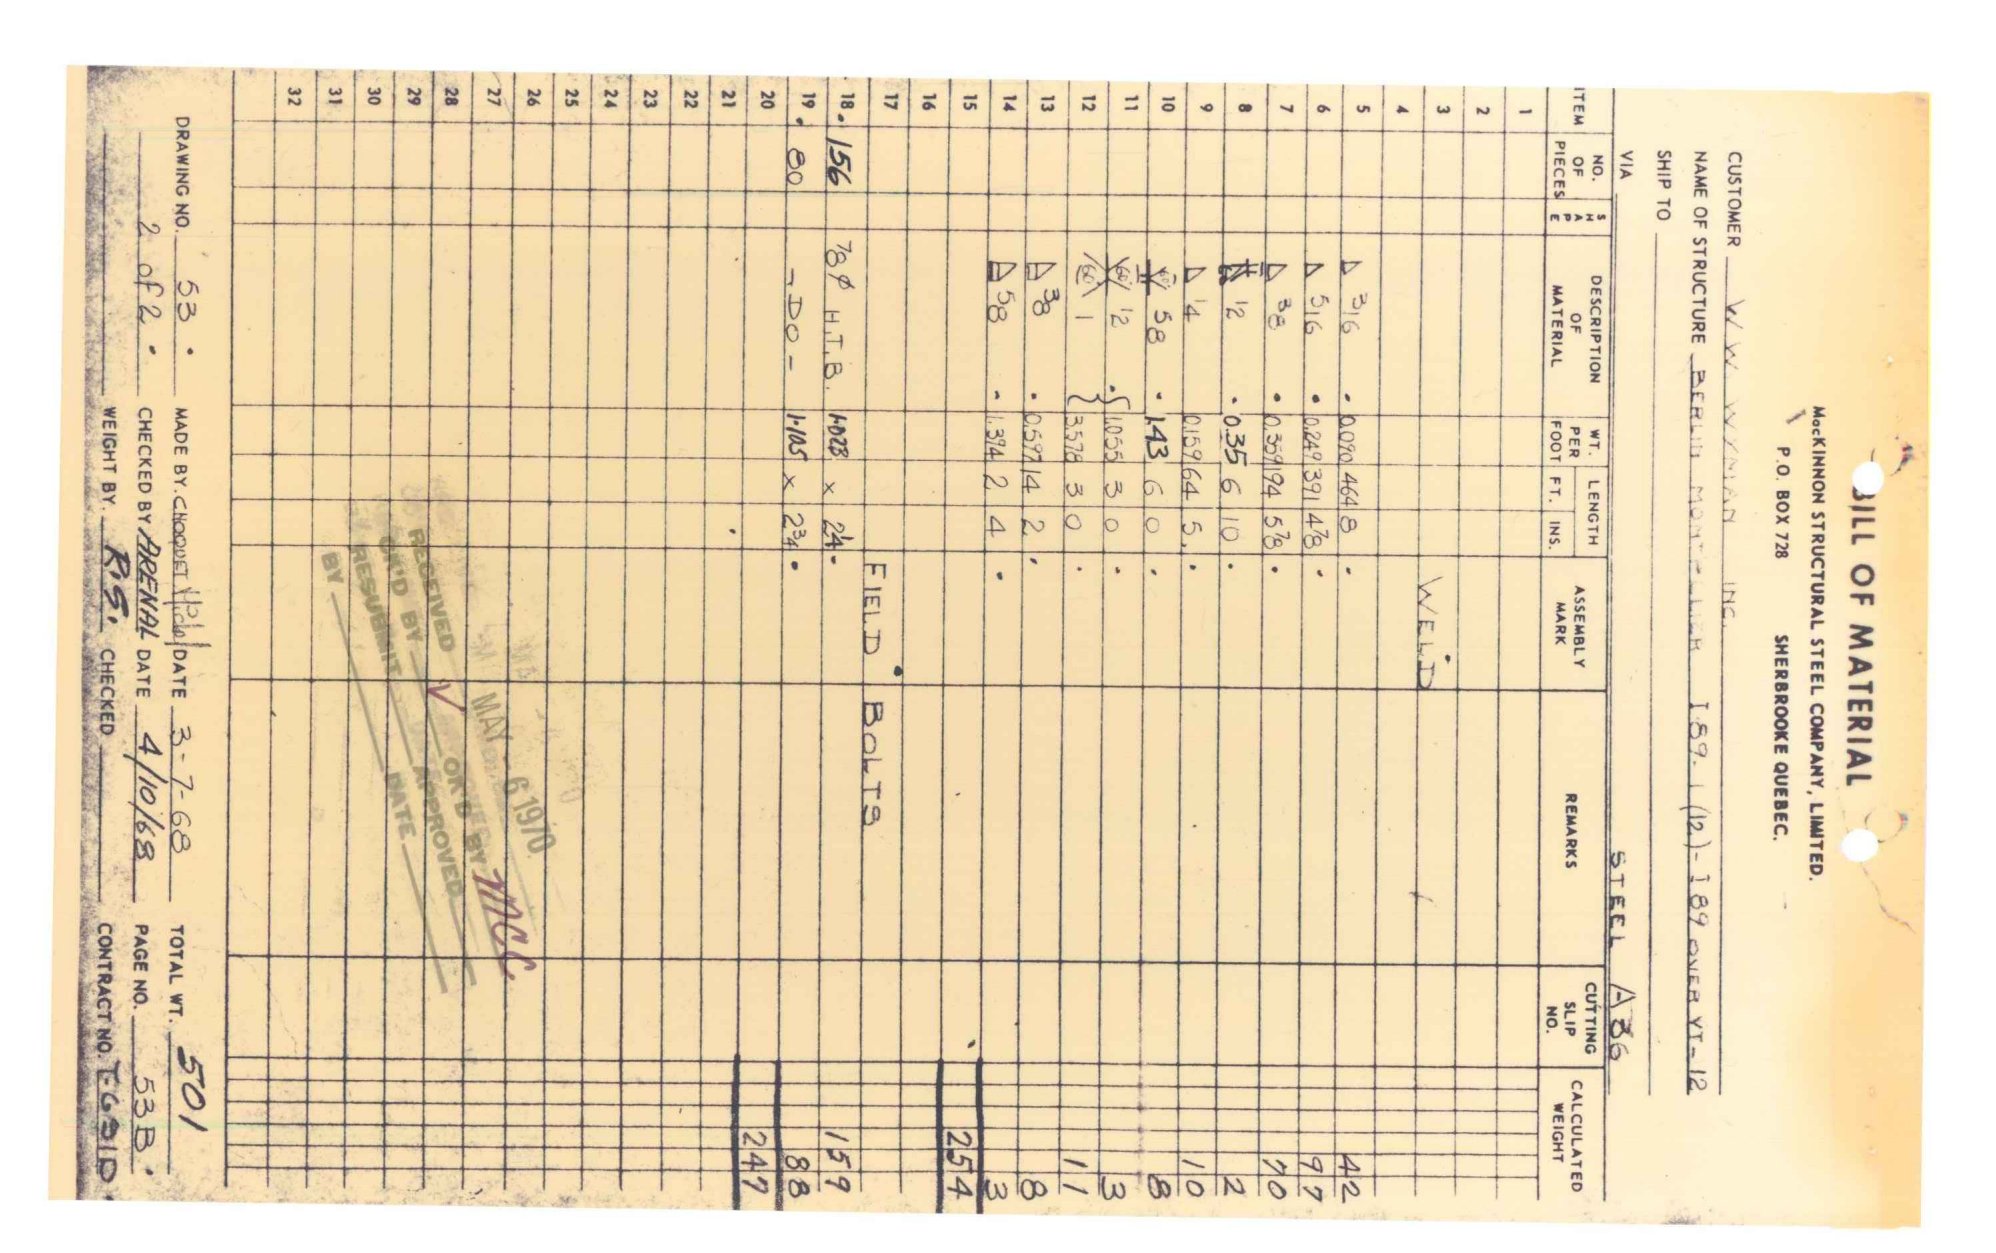 BILL OF MATERIAL
MacKINNON STRUCTURAL STEEL COMPANY, LIMITED.
P.O. BOX 728 SHERBROOKE QUEBEC.
CUSTOMER W. W. WYMAN INC.
NAME OF STRUCTURE BERLIN MONTPELIER I 89. 1 (12) - I 89 OVER VT-12
SHIP TO
VIA STEEL A36
ITEM NO. OF PIECES SHAPE DESCRIPTION OF MATERIAL WT. PER FOOT LENGTH FT. INS. ASSEMBLY MARK REMARKS CUTTING SLIP NO. CALCULATED WEIGHT
1
2
3 WELD
4
5 3/16 0.090 464 8 42
6 5/16 0.249 391 4 7/8 97
7 3/8 0.359 194 5 7/8 70
8 1/2 0.35 6 10 2
9 1/4 0.159 64 5 10
10 5/8 1.43 6 0 8
11 60° 1/2 1.055 3 0 3
12 60° 1 3.578 3 0 11
13 3/8 0.597 14 2 8
14 5/8 1.394 2 4 3
15 254
16
17 FIELD BOLTS
18 156 7/8 ø H.T.B. 1.023 x 2 1/4 159
19 80 - DO - 1.105 x 2 3/4 88
20 247
21
22
23
24
25
26
27
28
29
30
31
32
MAY - 6 1970
RECEIVED
OK'D BY OK'D BY MCC
RESUBMIT APPROVED
BY DATE
DRAWING NO. 53 MADE BY. DATE 3-7-68 TOTAL WT. 501
2 of 2 CHECKED BY ARENAL DATE 4/10/68 PAGE NO. 53B
WEIGHT BY. R.S. CHECKED CONTRACT NO.